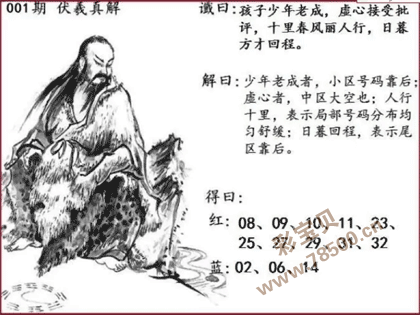 001期 伏羲真解
谶曰：孩子少年老成，虚心接受批
评，十里春风丽人行，日暮
方才回程。
解曰：少年老成者，小区号码靠后；
虚心者，中区大空也；人行
十里，表示局部号码分布均
匀舒缓；日暮回程，表示尾
区靠后。
得曰：
红：08、09、10、11、23、
25、27、29、31、32
蓝：02、06、14
彩宝贝
www.78500.cn